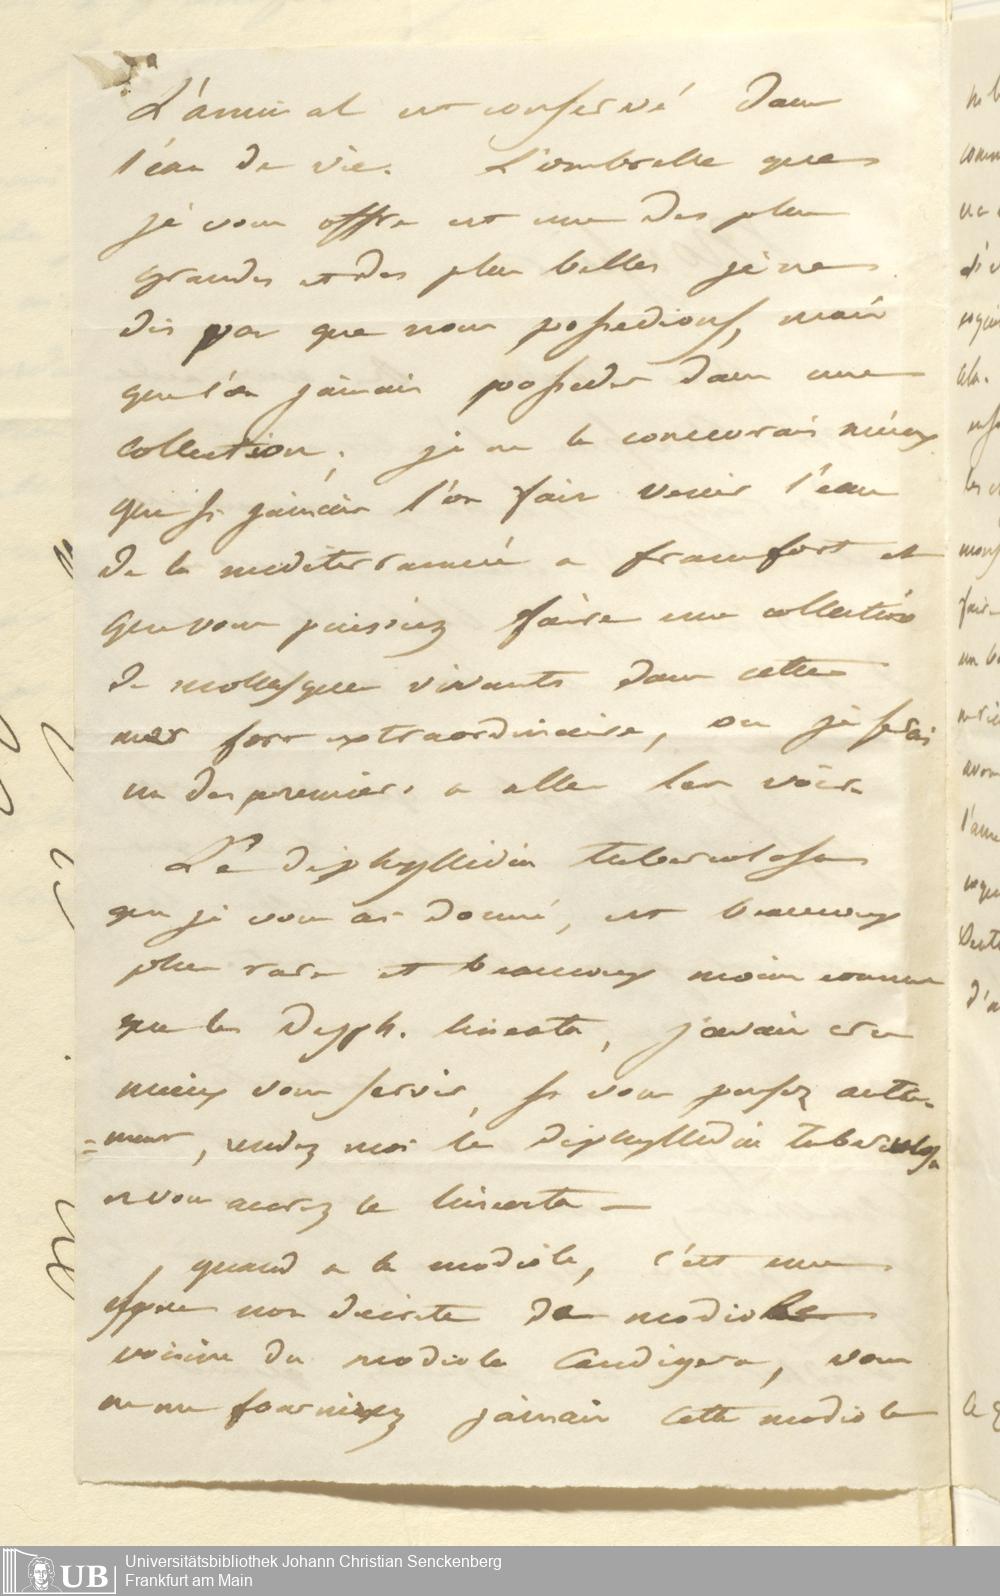 L'animal est conservé dans
l'eau de vie. L'ombrelle que
je vous offre est une des plus
grandes et des plus belles je ne
dis pas que nous possedions, mais
que l'on jamais posseder dans une
collection; je ne la concevrais mieux
que si jamais l'on fair venir l'eau
de la mediterrannée a francfort et
que vous puissiez faire une collection
de mollusques vivants dans cette
mer fort extraordinaire, ou je serai
un des premiers a aller les voir.
Le diphyllidia tuberculosa
que je vous ai donné, est beaucoup
plus rare et beaucoup moins connue
que la Dyph. lineata, j'avais cru
mieux vous servir, si vous pensez autre-
=ment, rendez moi la diphyllidia tuberculosa
et vous aurez la lineata —
quand a la modiole, c'est une
espece non decrite de modiole
voisine du modiola Caudigera, vous
ne me fournirez jamais cette modiole
Universitätsbibliothek Johann Christian Senckenberg
Frankfurt am Main
UB